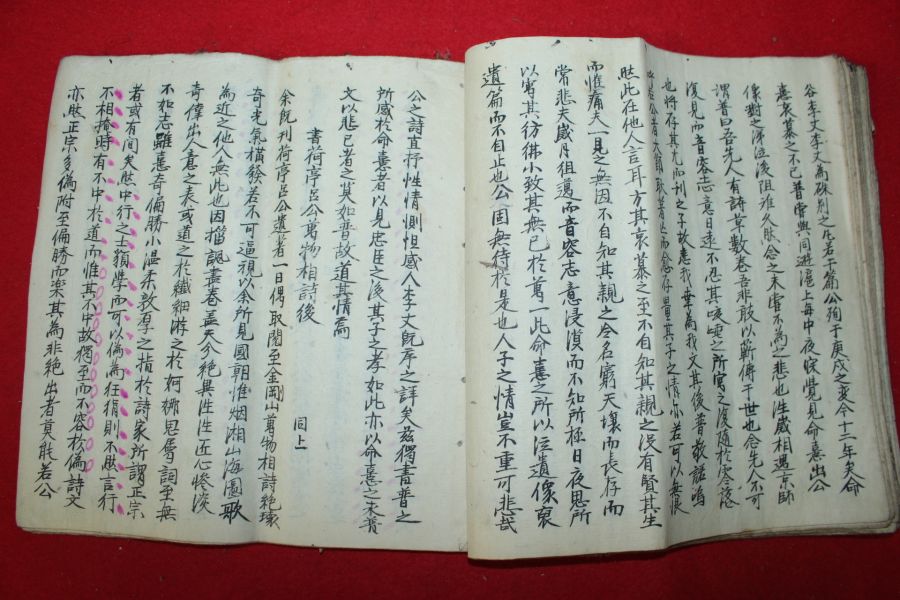 谷李丈李文為珠刖之凡若干篇公殉于庚戌之変今十二年矣命
憙哀慕之不已普嘗與同遊滬上每中夜寐覺見命憙出公
像對之涕泣後阻雖久然念之未嘗不為之悲也淮歲相遇京師
謂普曰吾先人有詩草數卷吾非敢以蘄傳于世也念先人不可
復見而音容志意日遠不忍其咳唾之所寓之復隨於零落
也将存其尤而刊之子故憙我葉為我文其後普敬諾嗚
然此在他人言耳方其哀慕之至不自知其親之没有賢其生
而惟痛夫一見之無因不自知其親之令名窮天壤而長存而
常悲夫歲月徂邁而音容志意浸漠而不知所極日夜思所
以寄其彷彿小致其無已於萬一此命憙之所以泣遺像裒
遺篇而不自止也公固無待於是也人子之情豈不重可悲哉
公之詩直抒性情惻怛感人李丈既序之詳矣茲獨書普之
所感於命憙者以見忠臣之後其子之孝如此亦以命憙之求普
文以悲已者之莫如普故道其情焉
書荷亭呂公萬物相詩後
同上
余既刊荷亭呂公遺著一日偶取閱至金剛山萬物相詩絶瓌
奇光氣橫發若不可逼視以余所見國朝惟烟湘山海圖歌
為近之他人無此也因擋諷盡卷盖天分絶異性近心慘淡
奇偉出人意之表或道之於纖細游之於婀娜思屬詞至無
不如志雖憙奇偏勝小温柔敦厚之指於詩家所謂正宗
者或有間矣然中行之士類學而可以偽為狂狷則不然言行
不相掩時有不中於道而惟其不中故獨至而不容於偽詩文
亦然正宗多偽附至偏勝而栄其為非絶出者莫能若公